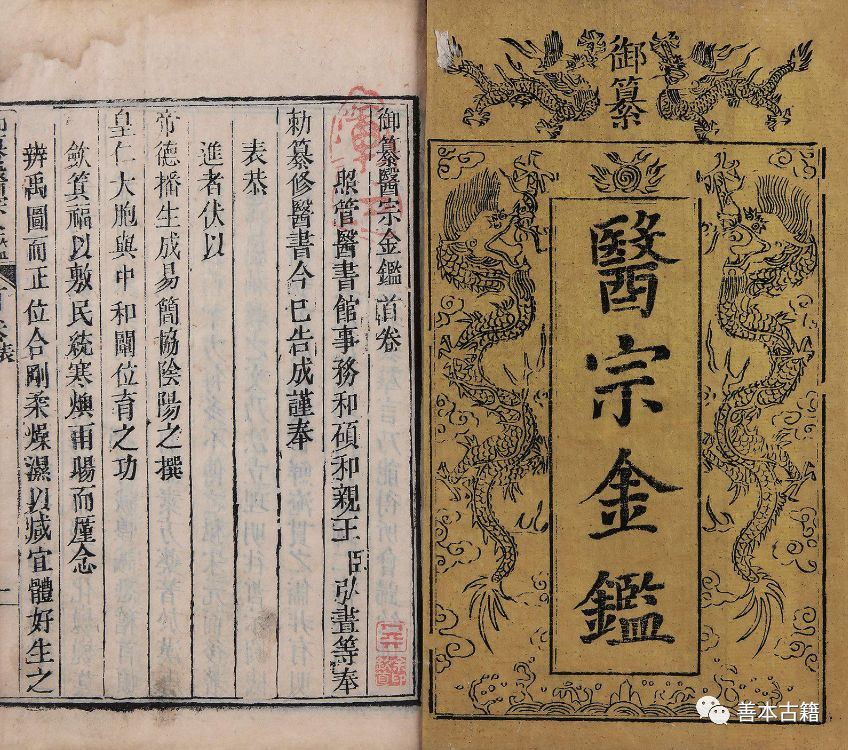 御纂
醫宗金鑑
御纂醫宗金鑑首卷
照管醫書館事務和碩和親王臣弘晝等奉
勅纂修醫書今已告成謹奉
表恭
進者伏以
帝德播生成易簡協陰陽之撰
皇仁大胞與中和闡位育之功
斂箕福以敷民統寒燠雨暘而廑念
辨禹圖而正位合剛柔燥濕以咸宜體好生之
善本古籍